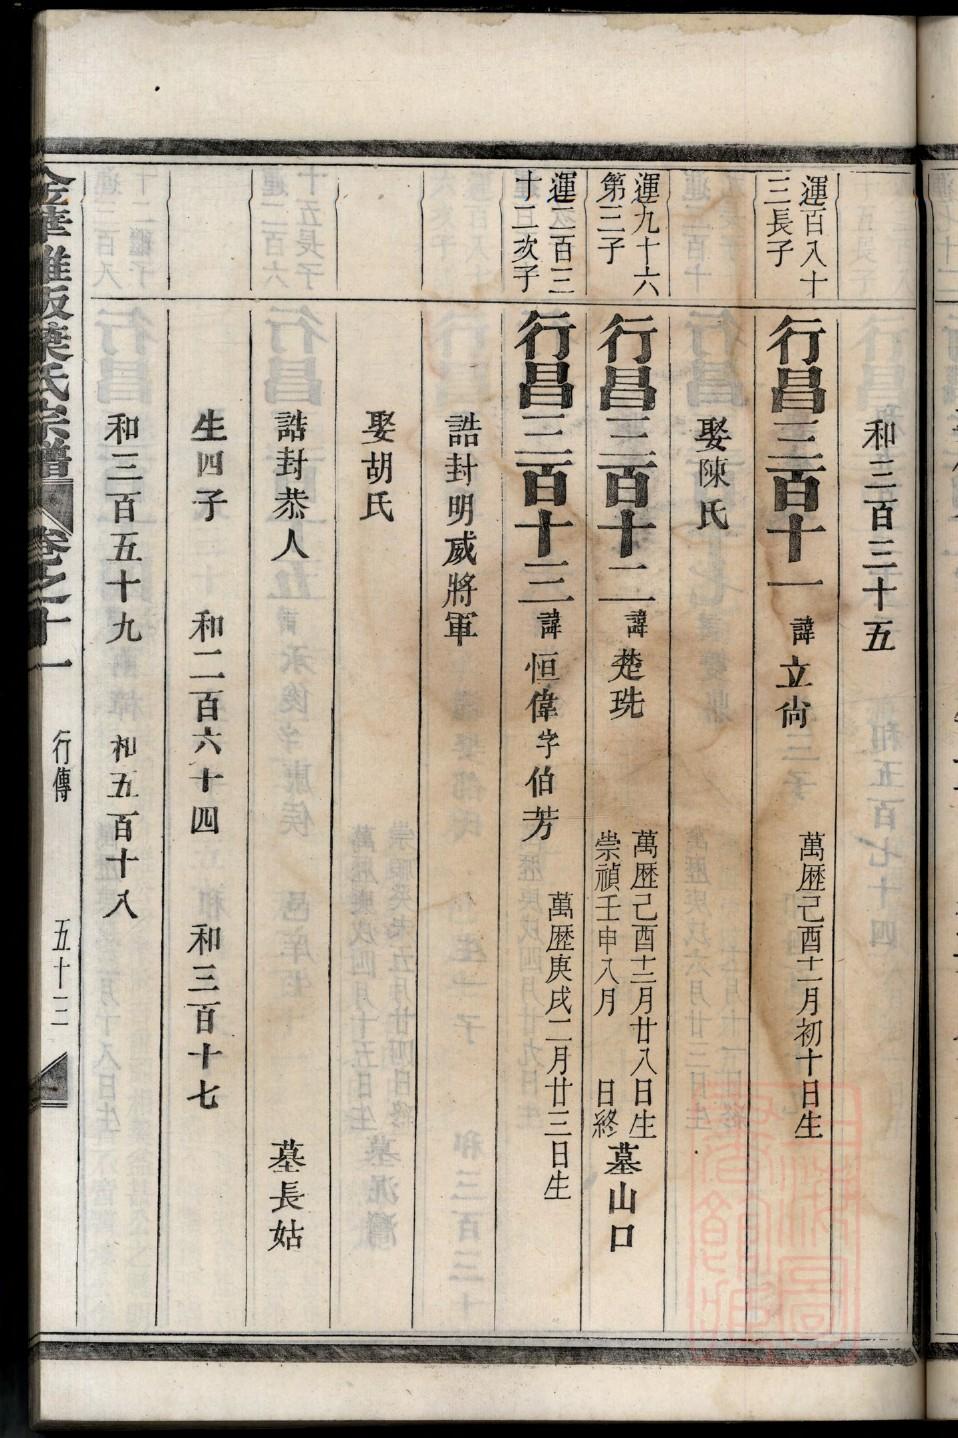 和三百三十五
運百八十
三長子
行昌三百十一 諱立尙 萬歷己酉十一月初十日生
娶陳氏
運九十六
第三子
行昌三百十二 諱楚珗 萬歷己酉十二月廿八日生
崇禎壬申八月 日終 墓山口
運二百三
十二次子
行昌三百十三 諱恒偉字伯芳 萬歷庚戌二月廿三日生
誥封明威將軍
娶胡氏
誥封恭人 墓長姑
生四子 和二百六十四 和三百十七
和三百五十九 和五百十八
金華雅畈葉氏宗譜 卷之十一 行傳 五十三